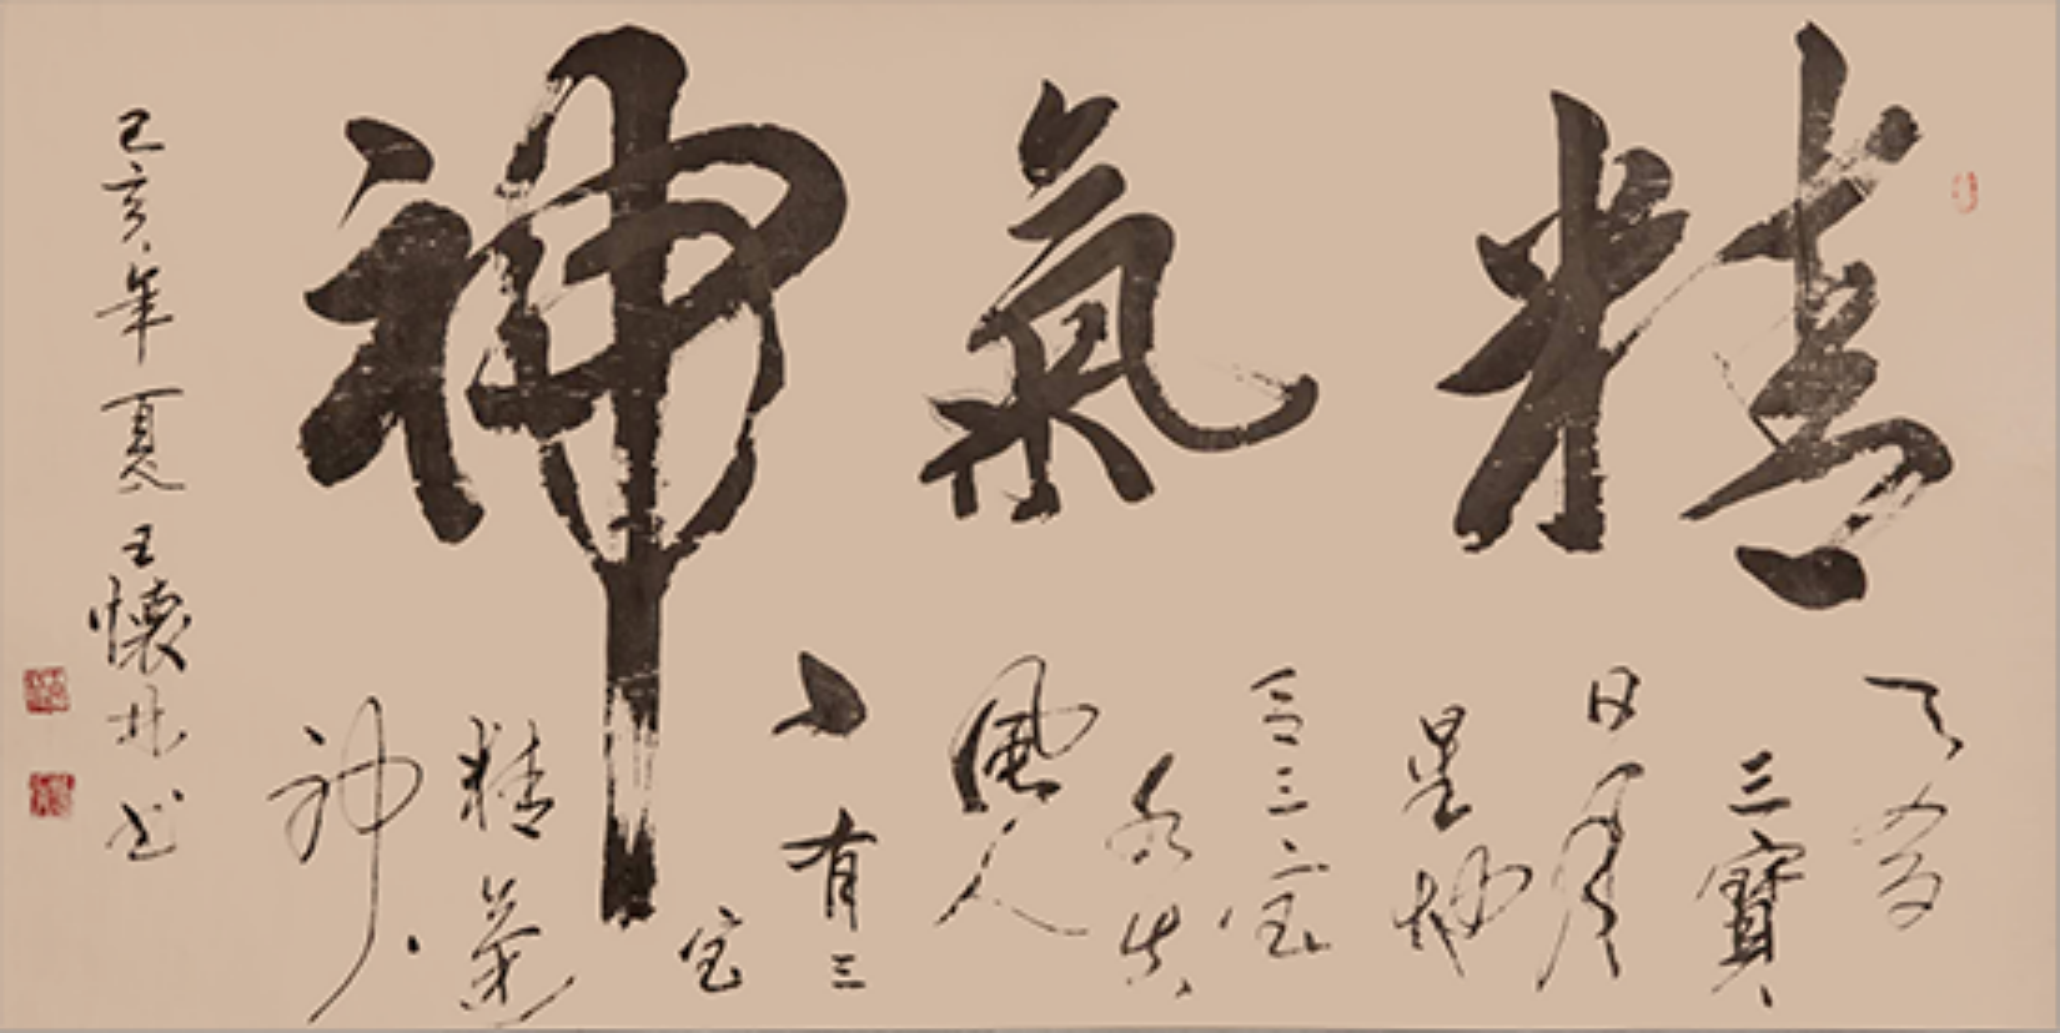 精氣神
天有
三寶
日月
星地
三宝
水火
風人
有三
宝
精氣
神
己亥年夏王懷林书